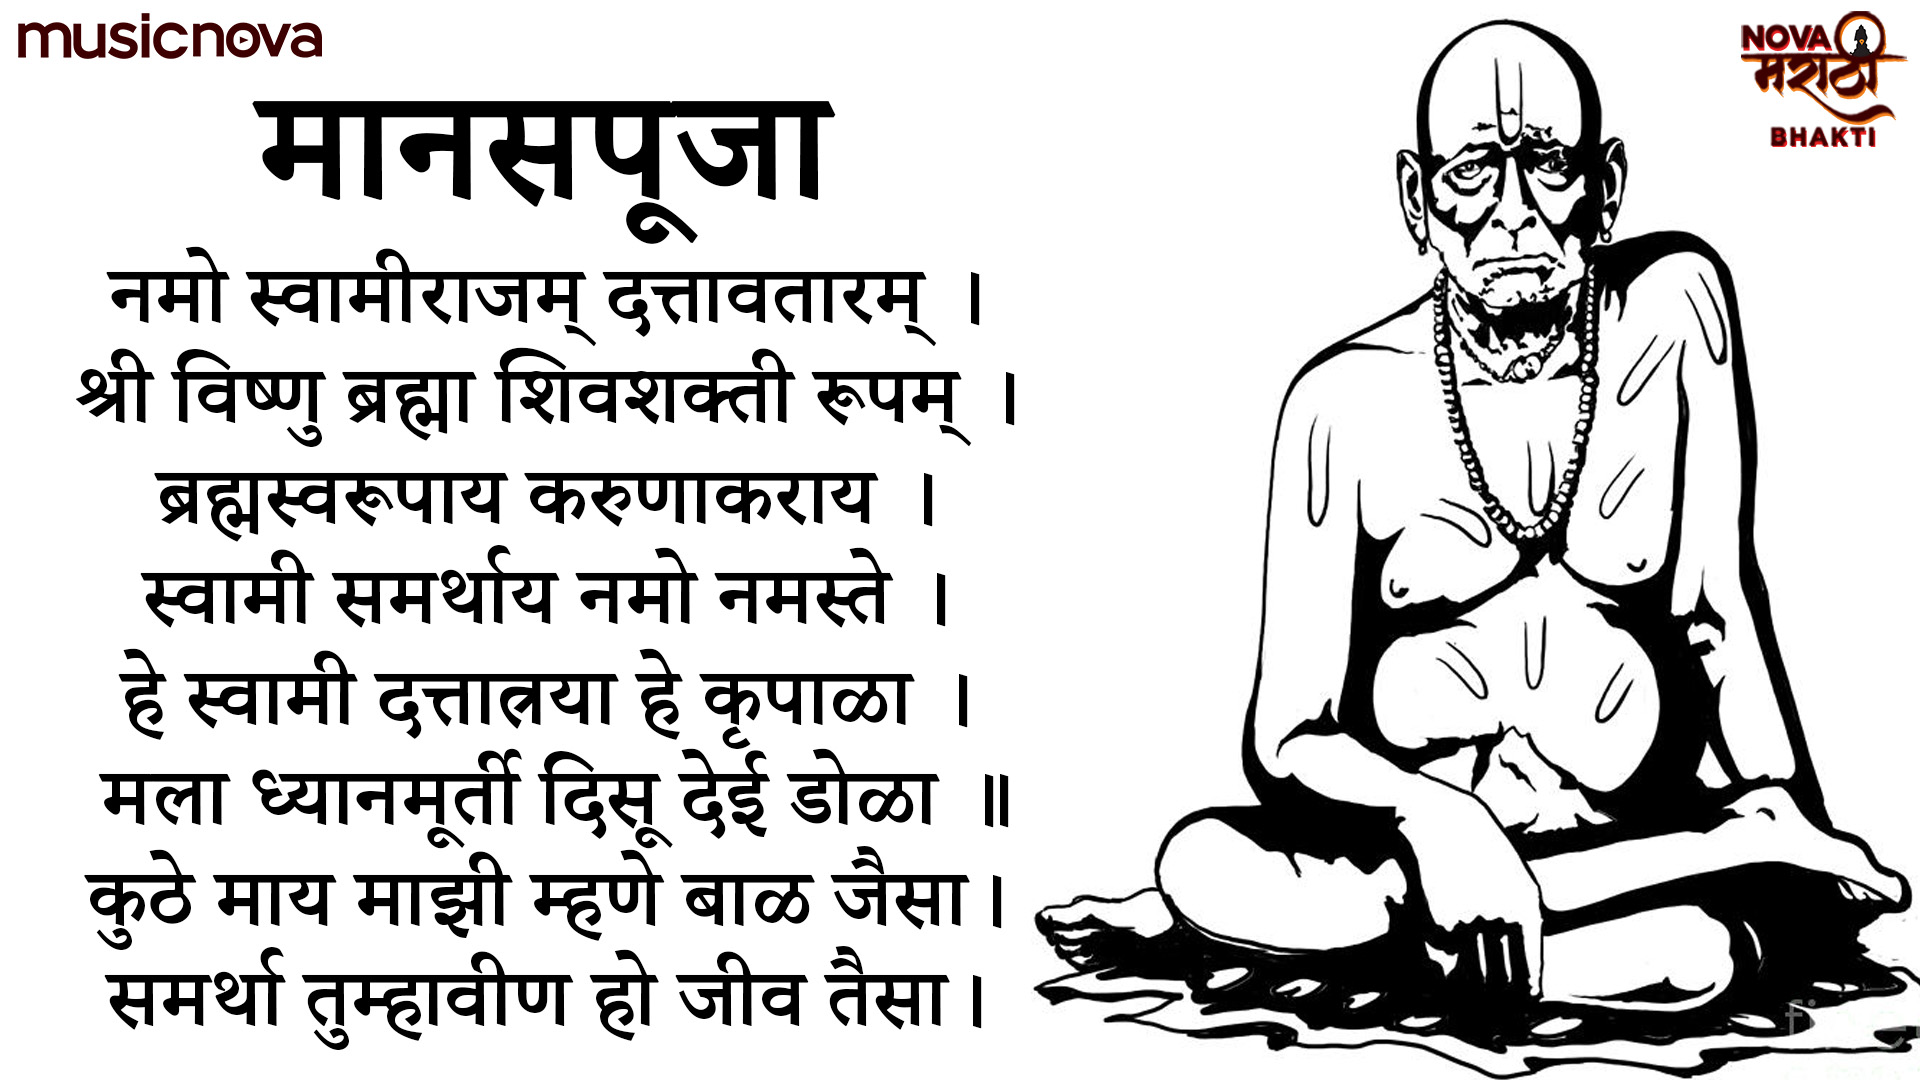 musicnova
NOVA
मराठी
BHAKTI
मानसपूजा
नमो स्वामीराजम् दत्तावतारम् ।
श्री विष्णु ब्रह्मा शिवशक्ती रूपम् ।
ब्रह्मस्वरूपाय करुणाकराय ।
स्वामी समर्थाय नमो नमस्ते ।
हे स्वामी दत्तात्रया हे कृपाळा ।
मला ध्यानमूर्ती दिसू देई डोळा ॥
कुठे माय माझी म्हणे बाळ जैसा।
समर्था तुम्हावीण हो जीव तैसा।